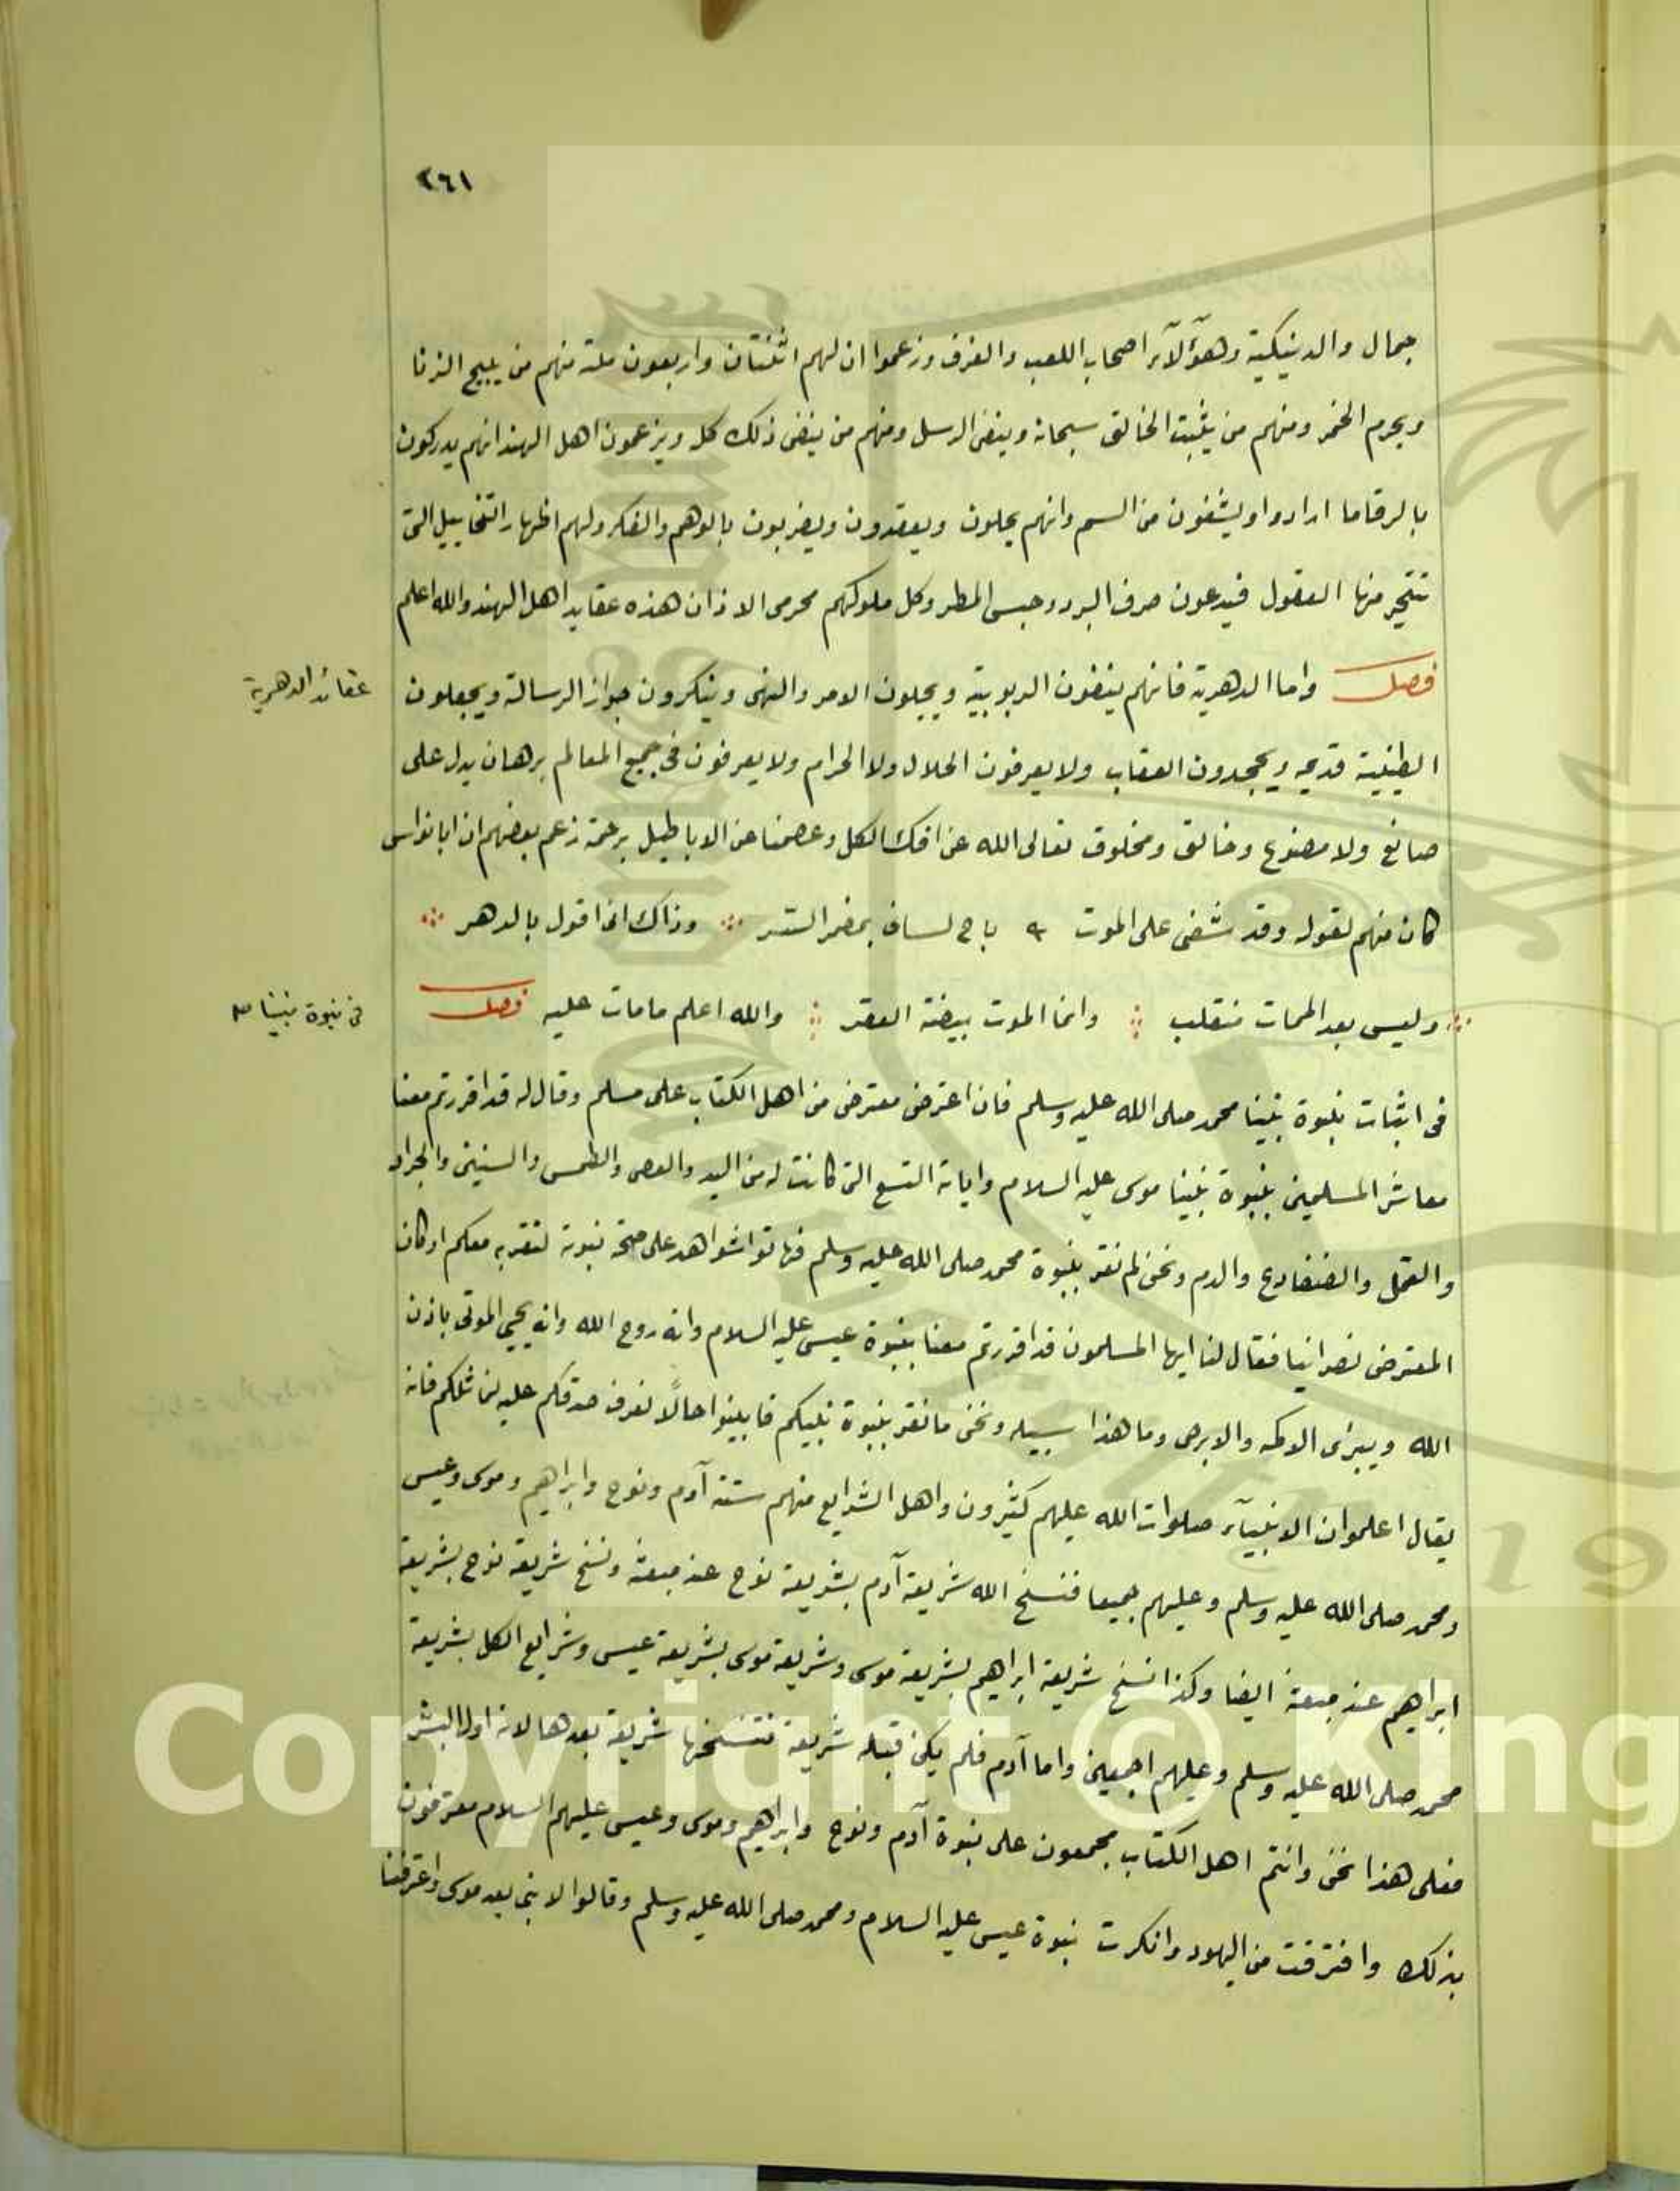 ٢٦١
جمال والدينيكية وهؤلآء اصحاب اللعب والغرف وزعموا ان لهم اثنتان واربعون ملة منهم من يبيح الزنا
ويحرم الخمر ومنهم من يثبت الخالق سبحانه وينفى الرسل ومنهم من ينفى ذلك كل ويزعمون اهل الهند انهم يدركون
بالرقا ما ارادوا ويشفون من السم وانهم يحلون ويعقدون ويضربون بالوهم والفكر ولهم اظهار التخاييل التى
تتحير منها العقول فيدعون صرف البرد وحبس المطر وكل ملوكهم محرمى الاذان هذه عقايد اهل الهند والله اعلم
فصل واما الدهرية فانهم ينفون الربوبية ويحيلون الامر والنهى وينكرون جواز الرسالة ويجعلون
عقائد الدهرية
الطينية قديمه ويجحدون العقاب ولا يعرفون الحلال ولا الحرام ولا يعرفون فى جميع المعالم برهان يدل على
صانع ولا مصنوع وخالق ومخلوق تعالى الله عن افك الكل وعصمنا عن الاباطيل برحمة زعم بعضهم ان ابا نواس
كان منهم لقوله وقد شفى على الموت باح لسانى بمضمر الستر وذاك انى اقول بالدهر
وليس بعد الممات منقلب وانما الموت بيضة العقر والله اعلم مامات عليه فصل
فى نبوة نبينا
فى اثبات نبوة نبينا محمد صلى الله عليه وسلم فان اعترض معترض من اهل الكتاب على مسلم وقال له قد اقررتم معنا
معاشر المسلمين بنبوة نبينا موسى عليه السلام واياته التسع التى كانت له من اليد والعصى والطمس والسنين والجراد
والقمل والضفادع والدم ونحن لم نقر بنبوة محمد صلى الله عليه وسلم فهاتوا شواهد على صحة نبوته لنقر به معكم او كان
المعترض نصرانيا فقال لنا ايها المسلمون قد اقررتم معنا بنبوة عيسى عليه السلام وانه روح الله وانه يحيى الموتى باذن
الله ويبرئ الاكمه والابرص وما هذا سبيله ونحن ما نقر بنبوة نبيكم فابينوا حالًا نعرف صدقكم عليه فانه
يقال اعلموا ان الانبيآء صلوات الله عليهم كثيرون واهل الشرايع منهم ستة آدم ونوح وابراهيم وموسى وعيسى
ومحمد صلى الله عليه وسلم وعليهم جميعا فنسخ الله شريعة آدم بشريعة نوح عند مبعثه ونسخ شريعة نوح بشريعة
ابراهيم عند مبعثه ايضا وكذا نسخ شريعة ابراهيم بشريعة موسى وشريعة موسى بشريعة عيسى وشرايع الكل بشريعة
محمد صلى الله عليه وسلم وعليهم اجمعين واما آدم فلم يكن قبله شريعة فتنسخها شريعة بعدها لانه اول البشر
فعلى هذا نحن وانتم اهل الكتاب مجمعون على نبوة آدم ونوح وابراهيم وموسى وعيسى عليهم السلام معترفون
بذلك وافترقت من اليهود وانكرت نبوة عيسى عليه السلام ومحمد صلى الله عليه وسلم وقالوا لا نبى بعد موسى واعترفنا
Copyright © King